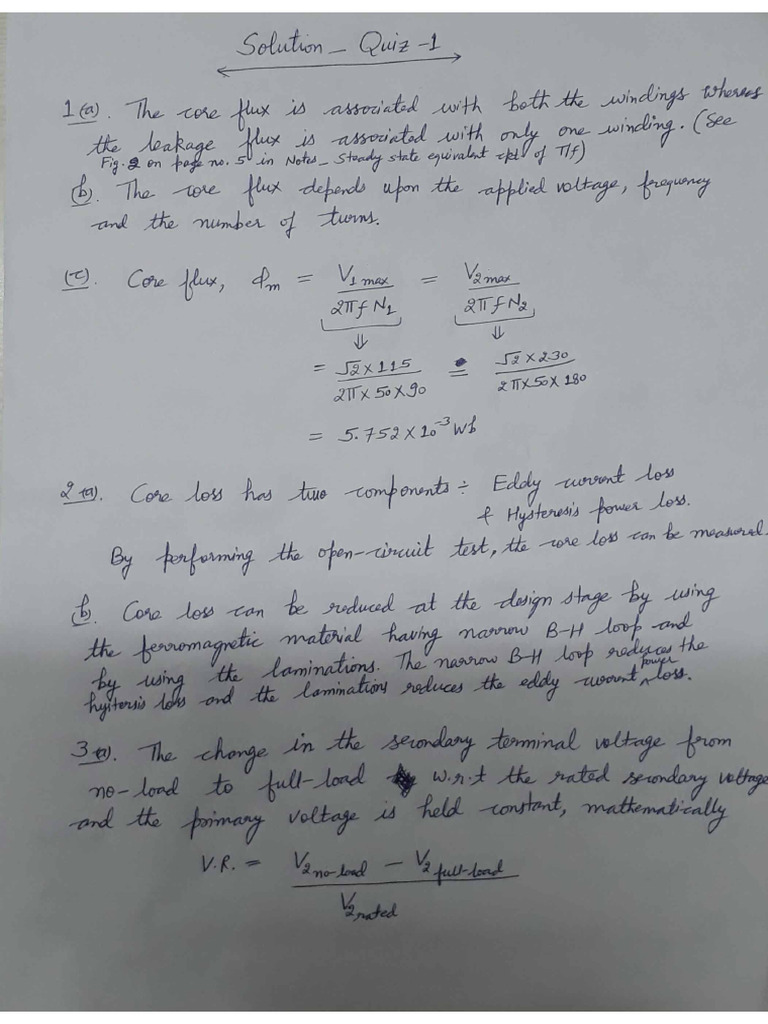 Solution - Quiz -1
1(a). The core flux is associated with both the windings whereas
the leakage flux is associated with only one winding. (See
Fig. 2 on page no. 5 in Notes - Steady state equivalent ckt of T/f)
(b). The core flux depends upon the applied voltage, frequency
and the number of turns.
(c). Core flux, Φm = V1max / 2πf N1 = V2max / 2πf N2
⇓ ⇓
= √2 × 115 / 2π × 50 × 90 = √2 × 230 / 2π × 50 × 180
= 5.752 × 10⁻³ Wb
2(a). Core loss has two components ÷ Eddy current loss
& Hysteresis power loss.
By performing the open-circuit test, the core loss can be measured.
(b). Core loss can be reduced at the design stage by using
the ferromagnetic material having narrow B-H loop and
by using the laminations. The narrow B-H loop reduces the
hyitersis loss and the laminations reduces the eddy current power loss.
3(a). The change in the secondary terminal voltage from
no-load to full-load w.r.t the rated secondary voltage
and the primary voltage is held constant, mathematically
V.R. = V2 no-load - V2 full-load / V2 rated